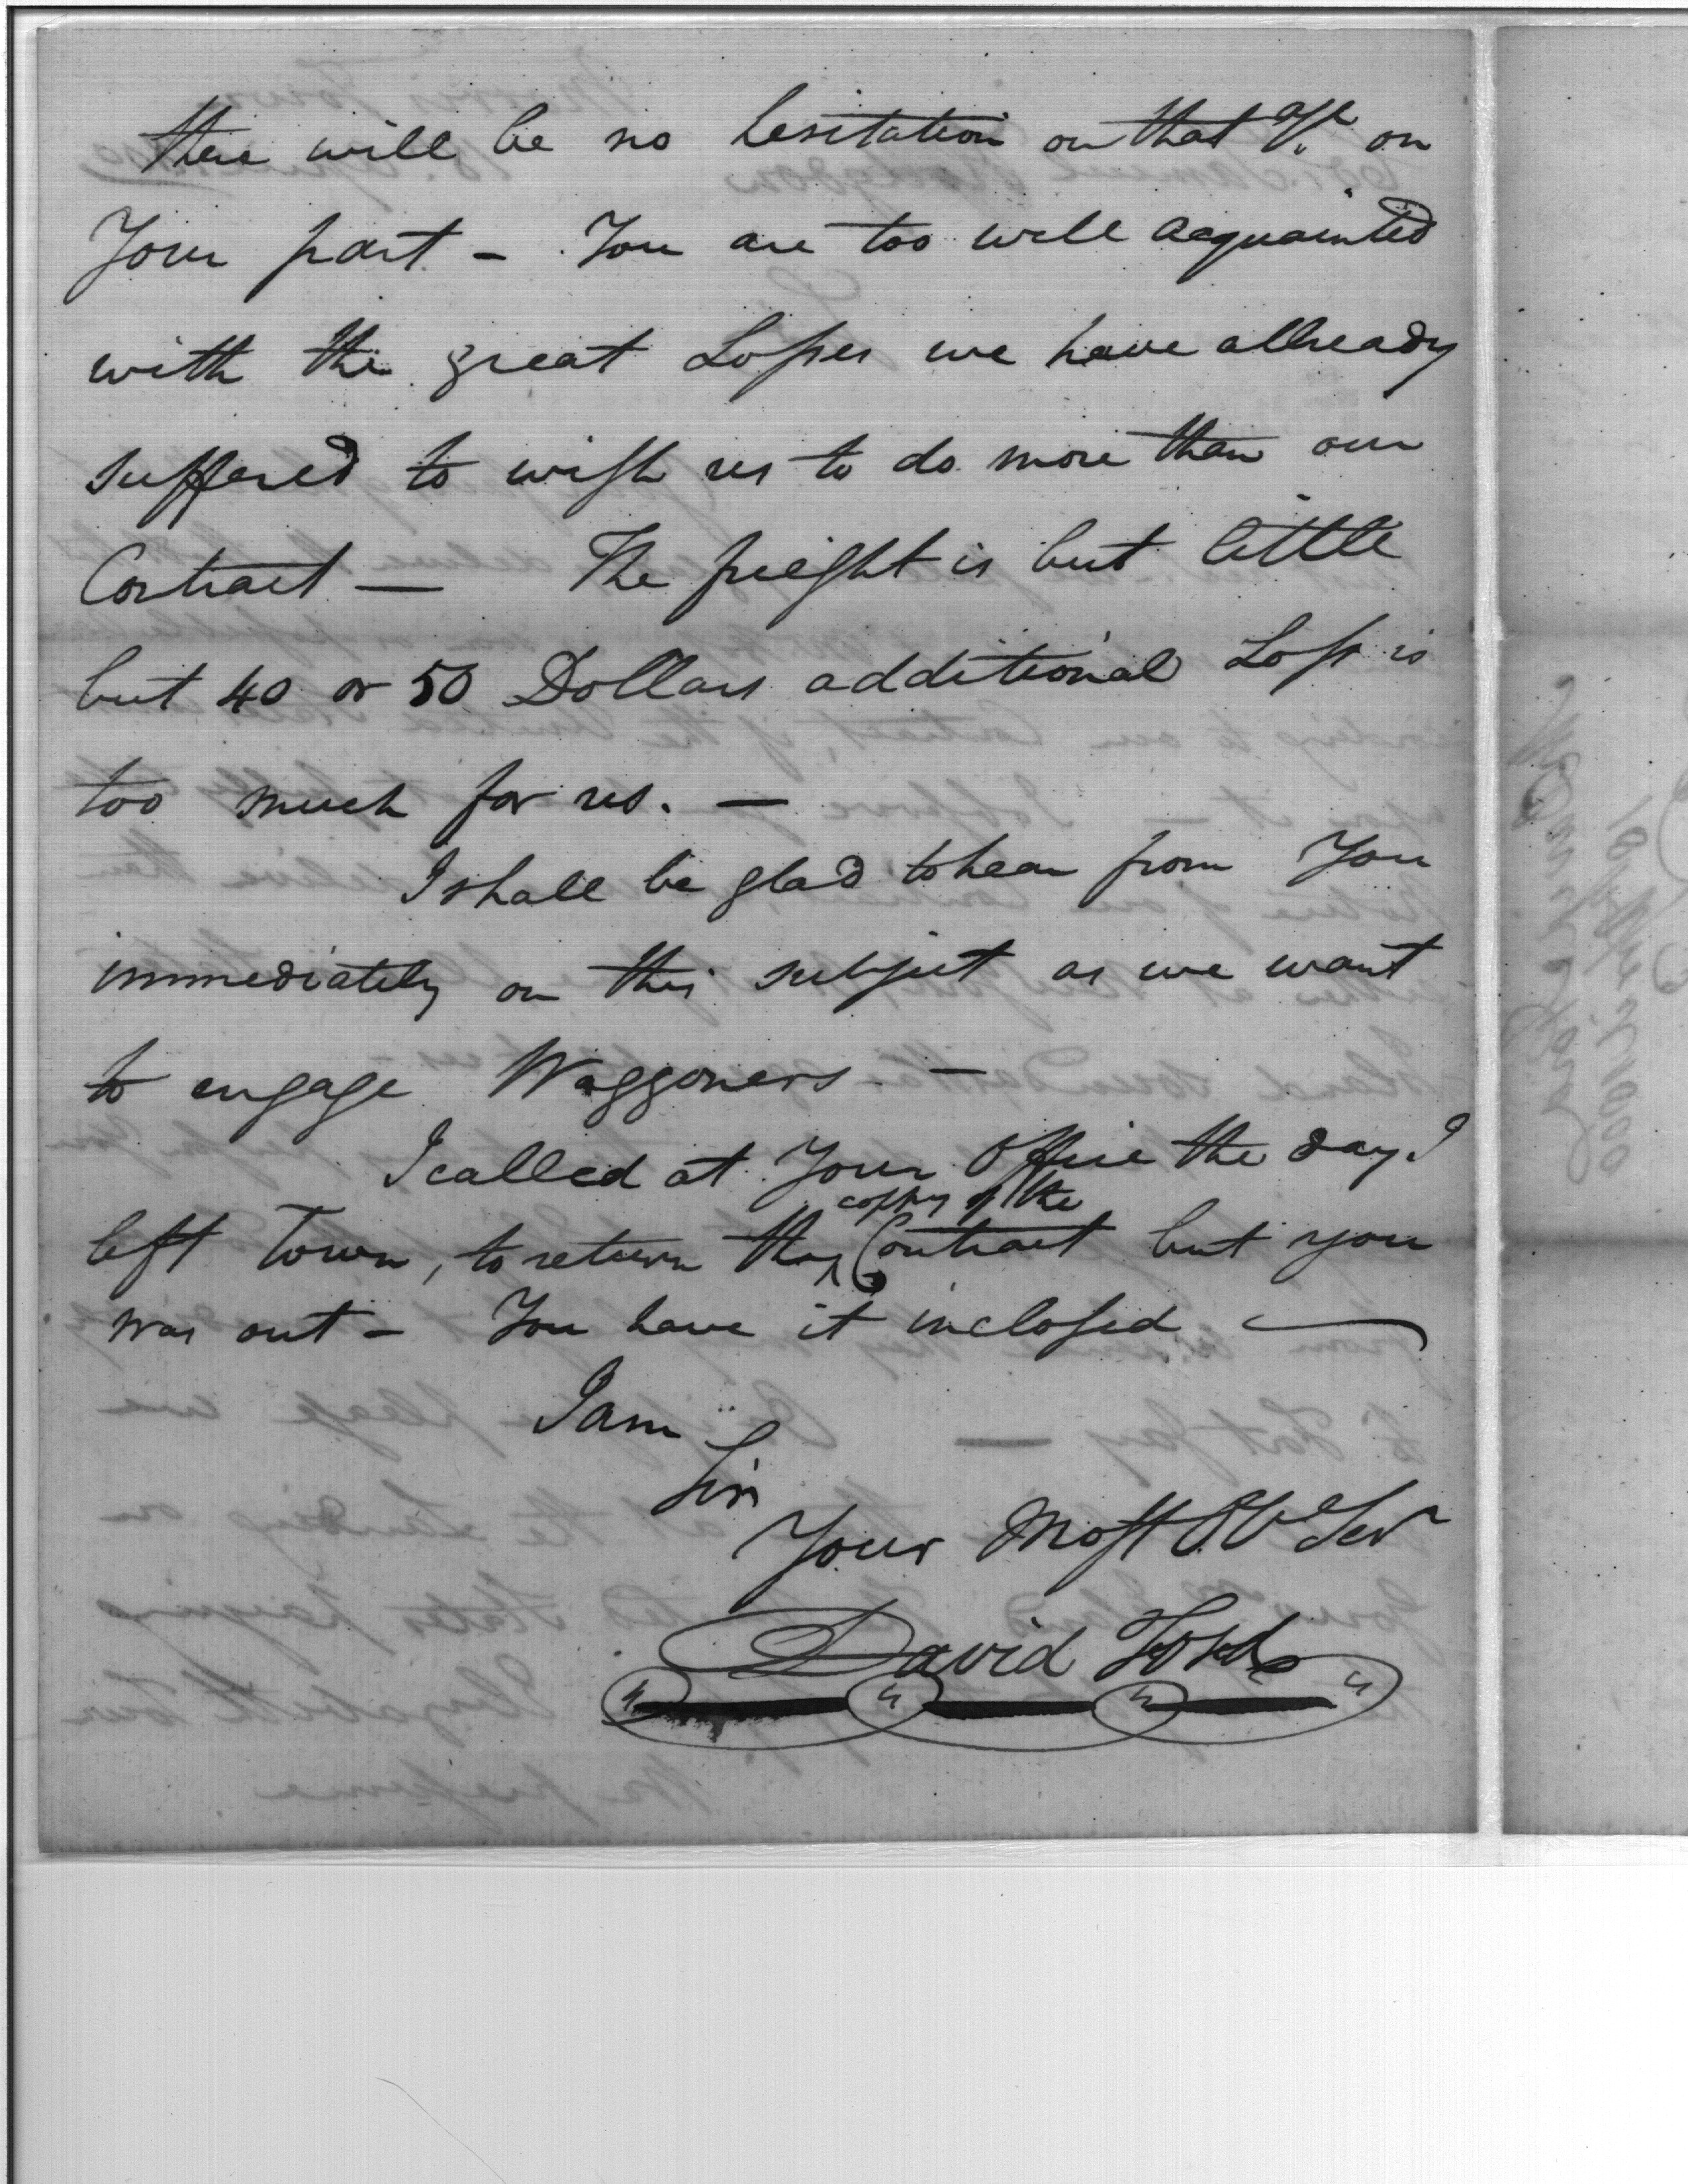 there will be no hesitation on that a/c on
Your part - You are too well acquainted
with the great Losses we have allready
suffered to wish us to do more than our
Contract — The freight is but little
but 40 or 50 Dollars additional Loss is
too much for us. —
I shall be glad to hear from You
immediately on this subject as we want
to engage Waggoners. —
I called at Your Office the day I
copy of the
left Town, to return the Contract but you
was out - You have it inclosed
I am
Sir
Your Most Ob Ser
David Ford